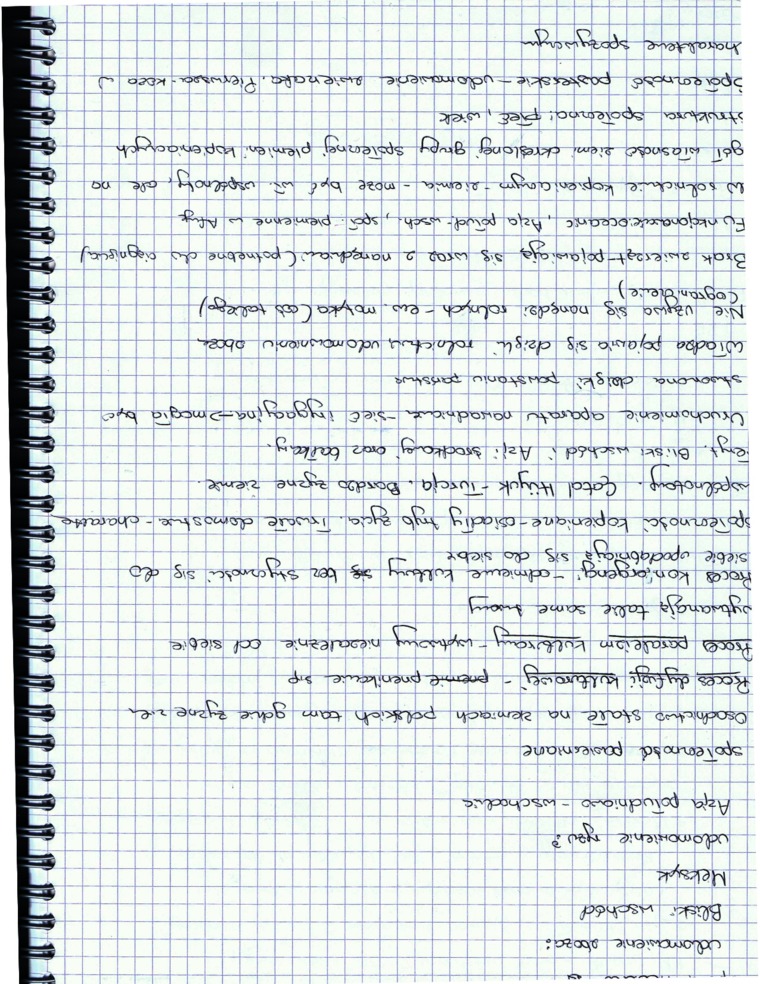 udomowienie zboża:
Bliski wschód
Meksyk
udomowienie ryżu?
Azja południowo - wschodnia
społeczność pasieniane
Osadnictwo stałe na ziemiach polskich tam gdzie żyzne
Proces dyfuzji kulturowej - przenikanie
Proces paralelizm kulturowy - wytwory niezależnie od siebie
wytwarzają takie same twory
Proces konwergencji - odmienne kultury bez styczności się do
siebie upodabniają się do siebie
społeczności kopieniacze - osiadły tryb życia. Trwałe domostwa -
wspólnotowy. Çatal Hüyük - Turcja. Bardzo żyzne ziemie.
Bliski wschód i Azji środkowej oraz bałkany.
Uruchomienie aparatu nawadniania - sieć irygacyjna → mogła być
stworzona dzięki powstaniu państwa
Władza pojawia się dzięki rolnictwu, udomowieniu zboża
Nie używa się narzędzi rolnych - ew. motyka (coś takiego)
(ogrodnictwie)
Brak zwierząt - pojawiają się wraz z narzędziami (potrzebne do ciągnięcia)
Azja połud-wsch., społ. plemienne w
W rolnictwie kopieniaczym - ziemia - może być wł. wspólnoty, ale na
ogół własność ziemi określonej grupy społecznej plemieni kopieniaczych
struktura społeczna: płeć, wiek
społeczność pasterskie - udomowienie zwierzaka. Pierwsza - koza w
charakterze spożywczym